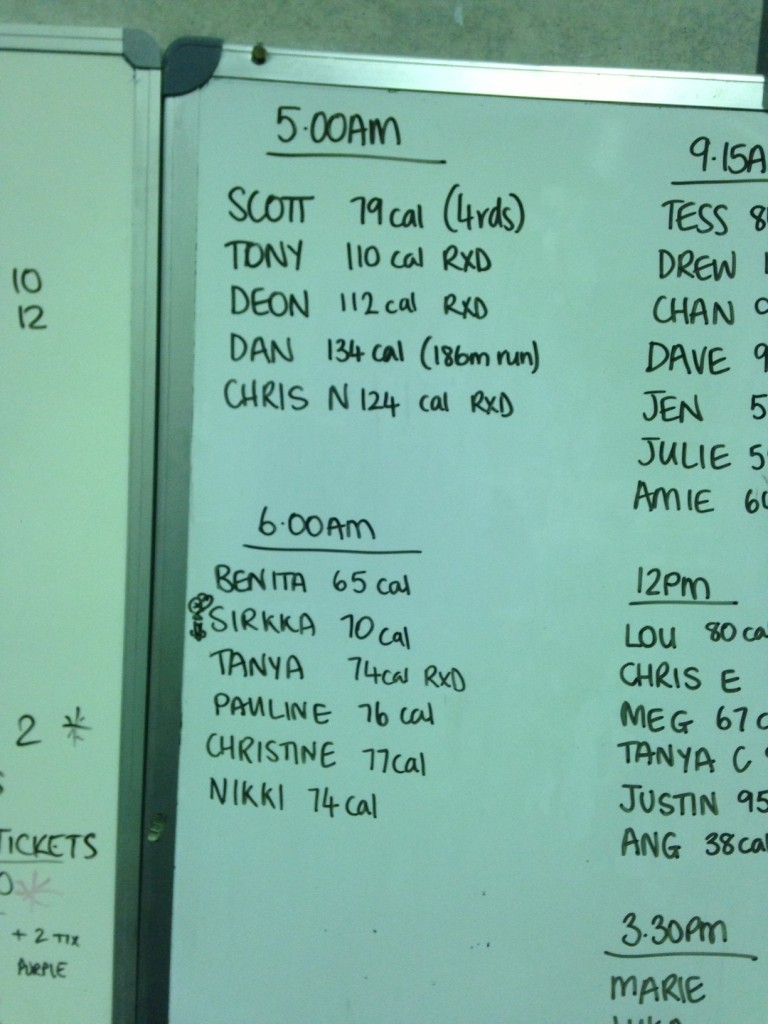 10
12
2 *
TICKETS
+ 2 TIX
PURPLE
5.00AM
SCOTT 79 cal (4rds)
TONY 110 cal RXD
DEON 112 cal RXD
DAN 134 cal (186m run)
CHRIS N 124 cal RXD
6.00AM
BENITA 65 cal
SIRKKA 70 cal
TANYA 74 cal RXD
PAULINE 76 cal
CHRISTINE 77 cal
NIKKI 74 cal
9.15A
TESS 8
DREW 1
CHAN 9
DAVE 9
JEN 5
JULIE 5
AMIE 60
12PM
LOU 80 ca
CHRIS E
MEG 67 c
TANYA C
JUSTIN 95
ANG 38 cal
3.30PM
MARIE